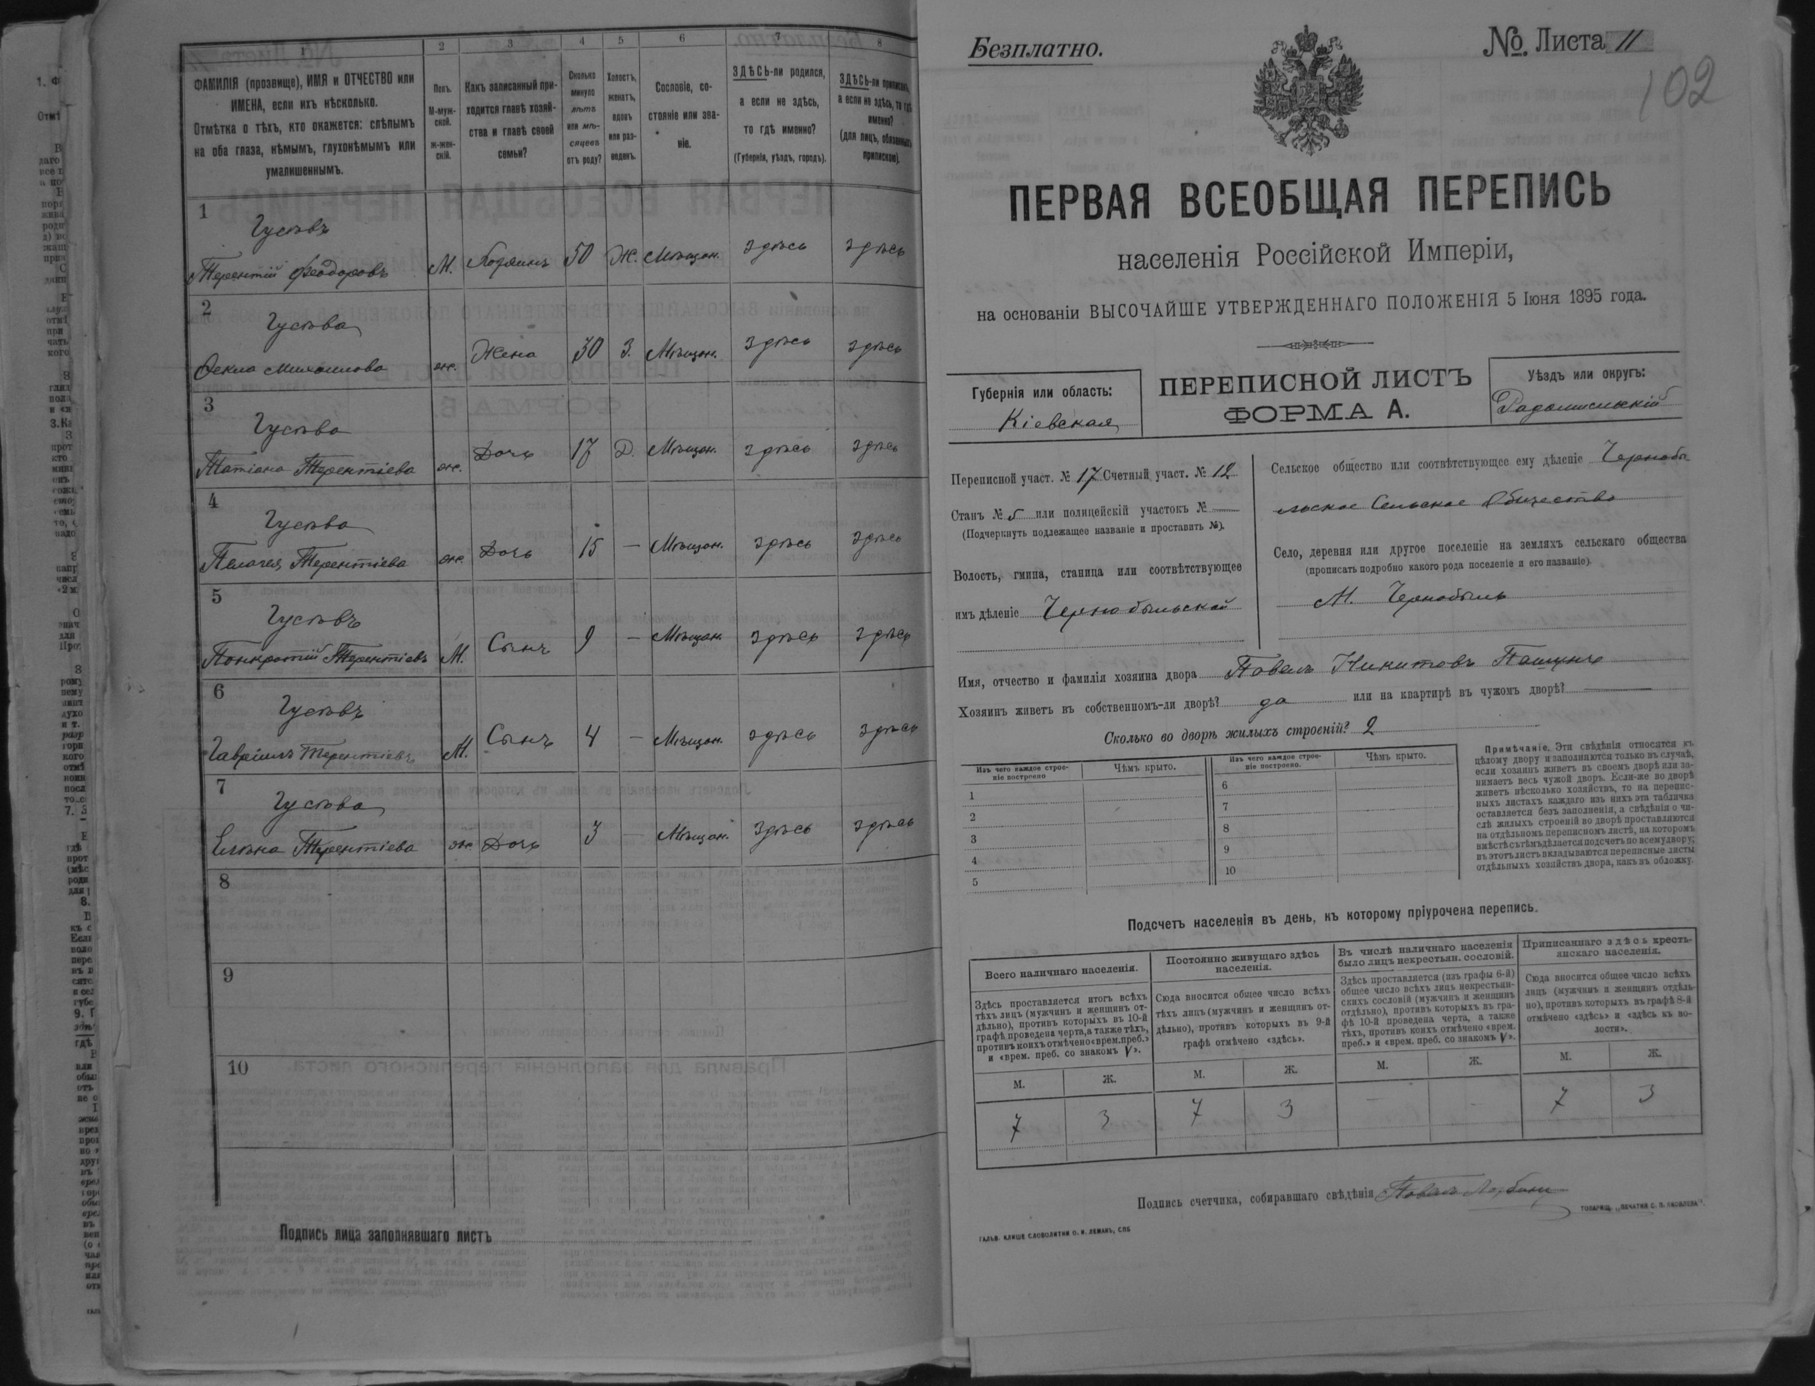 1 2 3 4 5 6 7 8
ФАМИЛІЯ (прозвище), ИМЯ и ОТЧЕСТВО или
ИМЕНА, если ихъ нѣсколько.
Отмѣтка о тѣхъ, кто окажется: слѣпымъ
на оба глаза, нѣмымъ, глухонѣмымъ или
умалишеннымъ.
Полъ.
М-муж-
ской.
Ж-жен-
скій.
Какъ записанный при-
ходится главѣ хозяй-
ства и главѣ своей
семьи?
Сколько
минуло
лѣтъ
или мѣ-
сяцевъ
отъ роду?
Холостъ,
женатъ,
вдовъ
или раз-
веденъ.
Сословіе, со-
стояніе или зва-
ніе.
ЗДѢСЬ-ли родился,
а если не здѣсь,
то гдѣ именно?
(Губернія, уѣздъ, городъ).
ЗДѢСЬ-ли приписанъ,
а если не здѣсь, то гдѣ
именно?
(для лицъ, обязанныхъ
припискою).
1
Густовъ
Терентій Феодоровъ М. Хозяинъ 50 Ж. Мѣщан. здѣсь здѣсь
2
Густова
Фекла Михаилова ж. Жена 30 З. Мѣщан. здѣсь здѣсь
3
Густова
Татіана Терентіева ж. Дочь 17 Д. Мѣщан. здѣсь здѣсь
4
Густова
Пелагея Терентіева ж. Дочь 15 — Мѣщан. здѣсь здѣсь
5
Густовъ
Понкратій Терентіевъ М. Сынъ 9 — Мѣщан. здѣсь здѣсь
6
Густовъ
Гавріилъ Терентіевъ М. Сынъ 4 — Мѣщан. здѣсь здѣсь
7
Густова
Елена Терентіева ж. Дочь 3 — Мѣщан. здѣсь здѣсь
8
9
10
Подпись лица заполнявшаго листъ
Безплатно.
№. Листа 11
102
ПЕРВАЯ ВСЕОБЩАЯ ПЕРЕПИСЬ
населенія Россійской Имперіи,
на основаніи ВЫСОЧАЙШЕ УТВЕРЖДЕННАГО ПОЛОЖЕНІЯ 5 Іюня 1895 года.
Губернія или область:
Кіевская
ПЕРЕПИСНОЙ ЛИСТЪ
ФОРМА А.
Уѣздъ или округъ:
Радомысльскій
Переписной участ. № 17 Счетный участ. № 12
Станъ № 5 или полицейскій участокъ №
(Подчеркнуть подлежащее названіе и проставить №).
Волость, гмина, станица или соотвѣтствующее
имъ дѣленіе Чернобыльской
Сельское общество или соотвѣтствующее ему дѣленіе Чернобы
льское Сельское Общество
Село, деревня или другое поселеніе на земляхъ сельскаго общества
(прописать подробно какого рода поселеніе и его названіе).
М. Чернобыль
Имя, отчество и фамилія хозяина двора Павелъ Никитовъ
Хозяинъ живетъ въ собственномъ-ли дворѣ? да или на квартирѣ въ чужомъ дворѣ? —
Сколько во дворѣ жилыхъ строеній? 2
Изъ чего каждое строе-
ніе построено
Чѣмъ крыто.
Изъ чего каждое строе-
ніе построено.
Чѣмъ крыто.
1 6
2 7
3 8
4 9
5 10
Примѣчаніе. Эти свѣдѣнія относятся къ
цѣлому двору и заполняются только въ случаѣ,
если хозяинъ живетъ въ своемъ дворѣ или за-
нимаетъ весь чужой дворъ. Если-же во дворѣ
живетъ нѣсколько хозяйствъ, то на перепис-
ныхъ листахъ каждаго изъ нихъ эта табличка
оставляется безъ заполненія, а свѣдѣнія о чи-
слѣ жилыхъ строеній во дворѣ проставляются
на отдѣльномъ переписномъ листѣ, на которомъ
вмѣстѣ съ тѣмъ дѣлается подсчетъ по всему двору;
въ этотъ листъ вкладываются переписные листы
отдѣльныхъ хозяйствъ двора, какъ въ обложку.
Подсчетъ населенія въ день, къ которому пріурочена перепись.
Всего наличнаго населенія.
Постоянно живущаго здѣсь
населенія.
Въ числѣ наличнаго населенія
было лицъ некрестьян. сословій.
Приписаннаго здѣсь кресть-
янскаго населенія.
Здѣсь проставляется итогъ всѣхъ
тѣхъ лицъ (мужчинъ и женщинъ от-
дѣльно), противъ которыхъ въ 10-й
графѣ проведена черта, а также тѣхъ,
противъ коихъ отмѣчено «врем. преб.»
и «врем. преб. со знакомъ V».
Сюда вносится общее число всѣхъ
тѣхъ лицъ (мужчинъ и женщинъ от-
дѣльно), противъ которыхъ въ 9-й
графѣ отмѣчено «здѣсь».
Здѣсь проставляется (изъ графы 6-й)
общее число всѣхъ лицъ некрестьян-
скихъ сословій (мужчинъ и женщинъ
отдѣльно), противъ которыхъ въ гра-
фѣ 10-й проведена черта, а также
тѣхъ, противъ коихъ отмѣчено «врем.
преб.» и «врем. преб. со знакомъ V».
Сюда вносится общее число всѣхъ
лицъ (мужчинъ и женщинъ отдѣль-
но), противъ которыхъ въ графѣ 8-й
отмѣчено «здѣсь» и «здѣсь къ во-
лости».
М. Ж. М. Ж. М. Ж. М. Ж.
7 3 7 3 - - 7 3
Подпись счетчика, собиравшаго свѣдѣнія Павелъ
ГАЛЬВ. КЛИШЕ СЛОВОЛИТНИ О. И. ЛЕМАНЪ, СПБ
ТОВАРИЩ. „ПЕЧАТНЯ С. П. ЯКОВЛЕВА“.